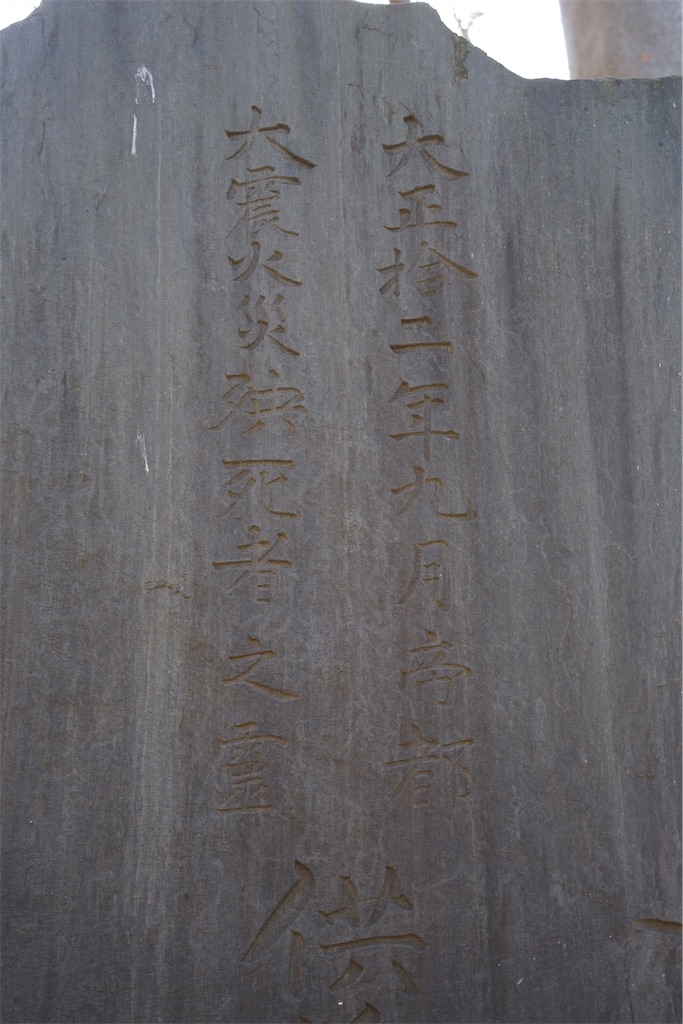 大正拾二年九月帝都
大震火災殃死者之霊
供